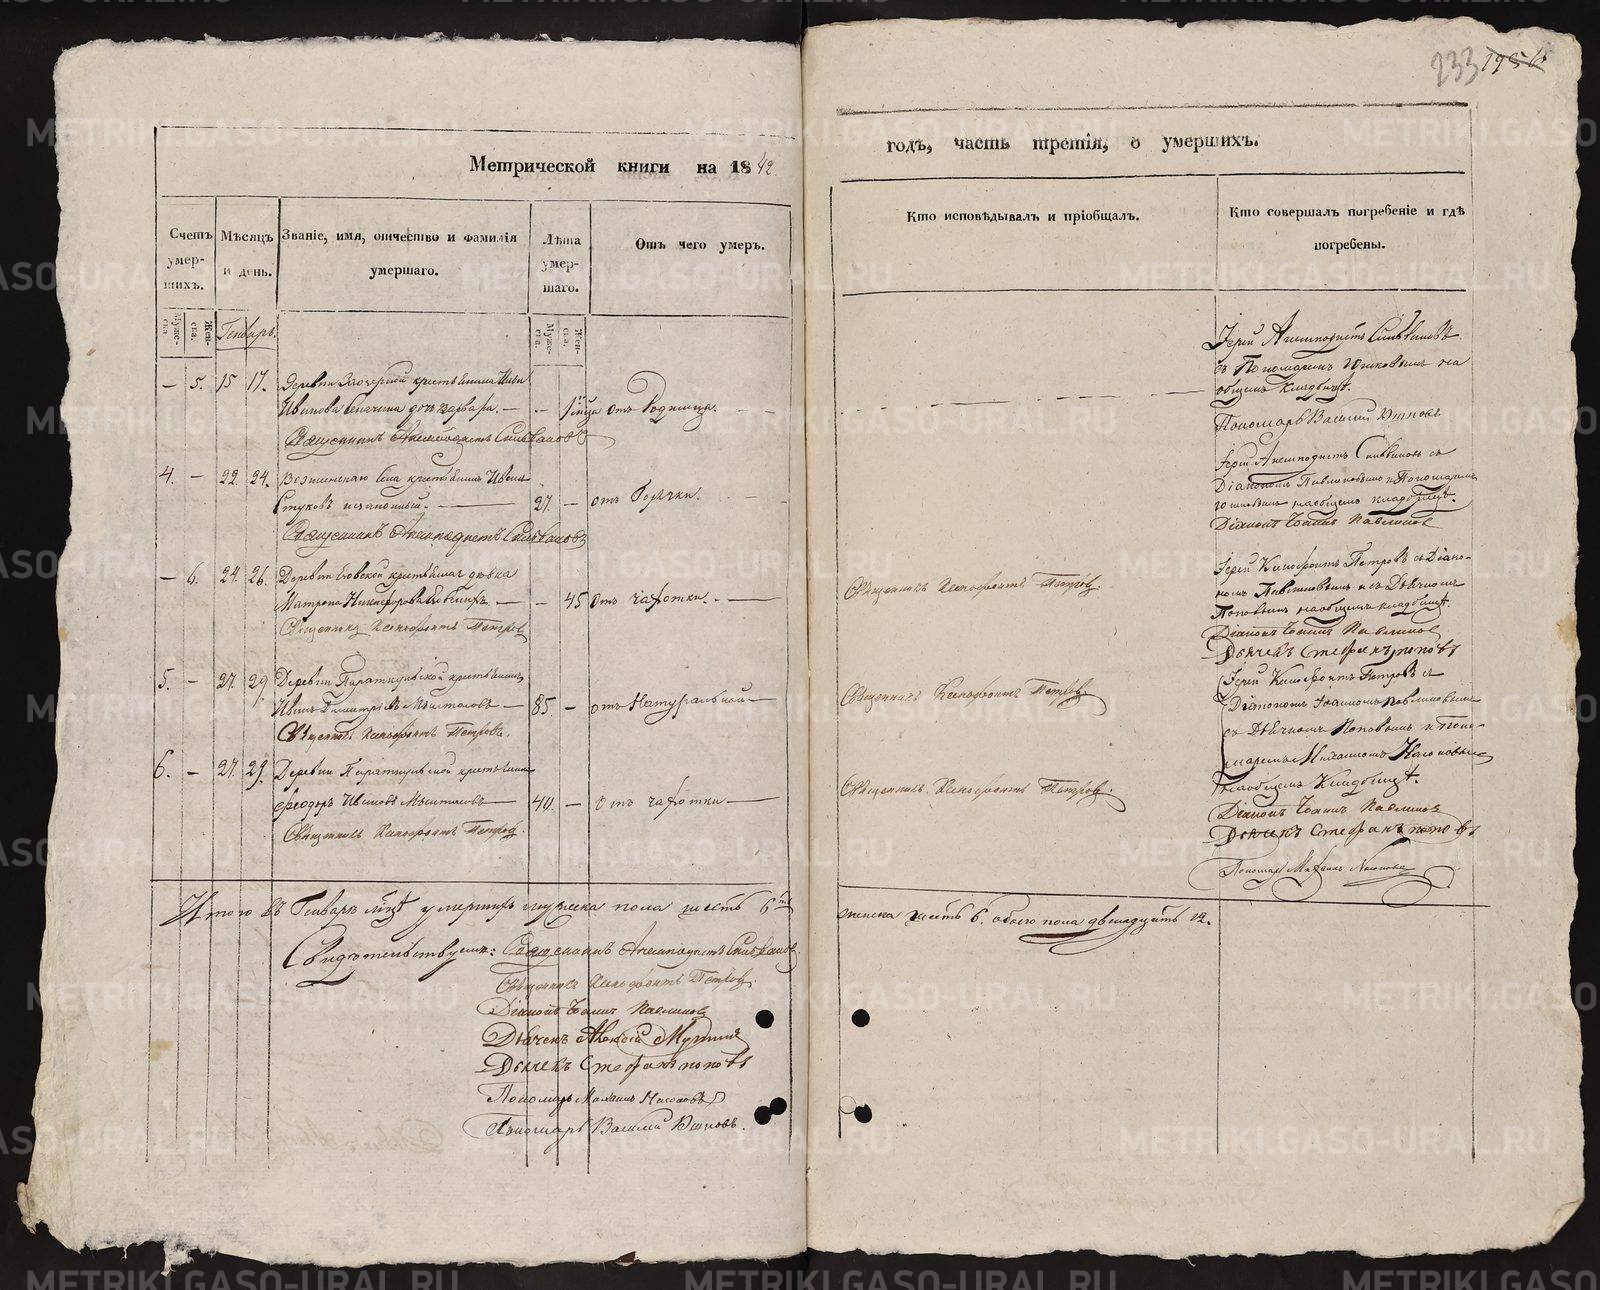 233 1956
Метрической книги на 1842
годъ, часть третія, о умершихъ.
Счетъ умер-шихъ.
Мѣсяцъ и день.
Званіе, имя, отчество и фамилія умершаго.
Лѣта умер-шаго.
Отъ чего умеръ.
Кто исповѣдывалъ и пріобщалъ.
Кто совершалъ погребеніе и гдѣ погребены.
Муже-ска
Жен-ска.
Генварь.
Муже-ска.
Жен-ска.
— 5. 15 17. Деревни крестьянина
Иванова дочь Варвара. — – 1 отъ Родимца.
Священникъ Анемподистъ Сильвановъ
Іерей Анемподистъ Сильвановъ
съ Пономаремъ на
общемъ кладбищѣ.
Пономарь Василій
4. — 22. 24. села крестьянинъ Иванъ
27. — отъ Горячки.
Священникъ Анемподистъ Сильвановъ
Іерей Анемподистъ Сильвановъ съ
Діакономъ Павлиновымъ и Пономаремъ
на общемъ кладбищѣ.
Діаконъ Іоаннъ Павлиновъ
— 6. 24. 26. Деревни крестьянская дѣвка
Матрона Никифорова — – 45 отъ чахотки. —
Священникъ Ксенофонтъ Петровъ
Священникъ Ксенофонтъ Петровъ
Іерей Ксенофонтъ Петровъ съ Діако-
номъ Павлиновымъ и съ Дьячкомъ
Поповымъ на общемъ кладбищѣ.
Діаконъ Іоаннъ Павлиновъ
Дьячекъ Стефанъ Поповъ
5. — 27. 29 Деревни крестьянинъ
Иванъ Димитріевъ — 85. — отъ Натуральной —
Священникъ Ксенофонтъ Петровъ.
Священникъ Ксенофонтъ Петровъ
Іерей Ксенофонтъ Петровъ съ
Діакономъ Іоанномъ Павлиновымъ
съ Дьячкомъ Поповымъ и Поно-
маремъ Михаиломъ
на общемъ Кладбищѣ.
6. — 27. 29. Деревни крестьянинъ
Феодоръ Ивановъ — 40. — отъ чахотки —
Священникъ Ксенофонтъ Петровъ.
Священникъ Ксенофонтъ Петровъ.
Діаконъ Іоаннъ Павлиновъ
Дьячекъ Стефанъ Поповъ
Пономарь Михаилъ
Итого въ Генварѣ м҃цѣ умершихъ мужеска пола шесть 6ть
женска шесть 6. обоего пола двенадцать 12.
Свидѣтельствуемъ: Священникъ Анемподистъ Сильвановъ.
Священникъ Ксенофонтъ Петровъ
Діаконъ Іоаннъ Павлиновъ
Дьячекъ Алексій
Дьячекъ Стефанъ Поповъ
Пономарь Михаилъ
Пономарь Василій
METRIKI.GASO-URAL.RU